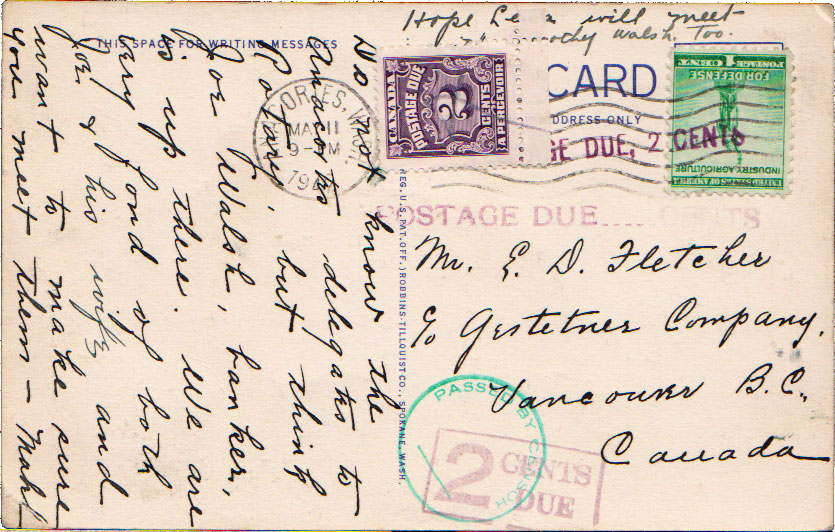 Hope Le will meet
Dorothy Walsh, too.
THIS SPACE FOR WRITING MESSAGES
Do not know the
Anacortes delegates to
Rotary, but think
Joe Walsh, banker,
is up there. We are
very fond of both
Joe & his wife and
want to make sure
you meet them —
CARD
ADDRESS ONLY
CANADA
POSTAGE DUE
2
CENTS
A PERCEVOIR
1
CENT
POSTAGE
FOR DEFENSE
INDUSTRY AGRICULTURE
UNITED STATES OF AMERICA
MAR 11
9 - PM
DUE, 2 CENTS
POSTAGE DUE.... CENTS
REG. U.S. PAT. OFF.) ROBBINS-TILLQUIST CO., SPOKANE, WASH.
Mr. E. D. Fletcher
c/o Gestetner Company,
Vancouver B.C.,
Canada
PASSED BY CENSOR
2 CENTS
DUE